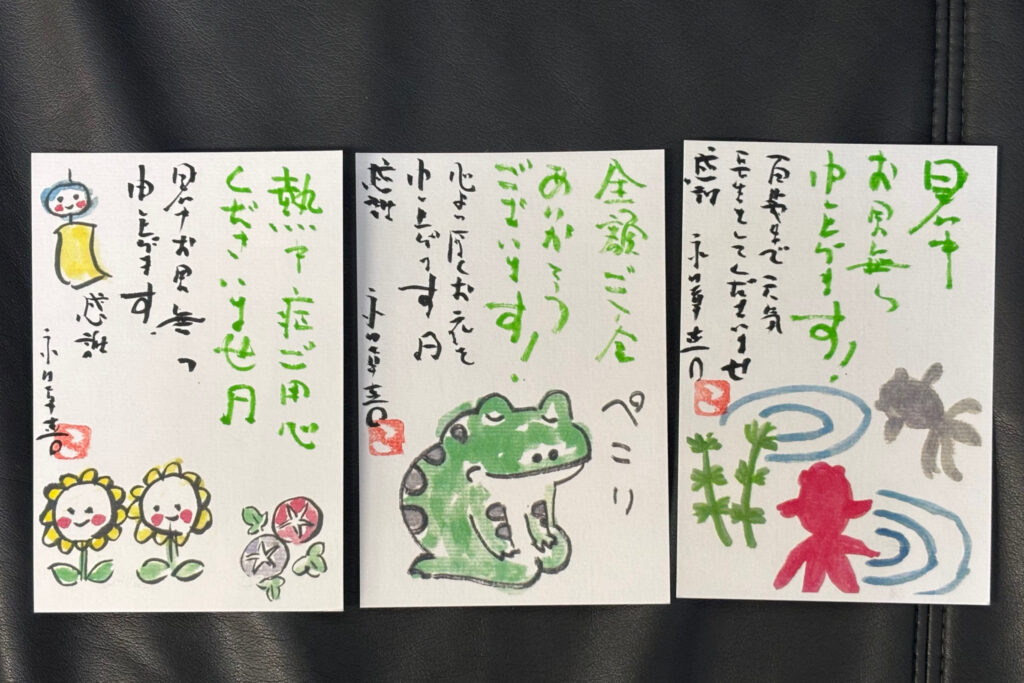 熱中症ご用心
くださいませ
暑中お見舞い
申し上げます
感謝
全額ご入金
ありがとう
ございます!
心より厚くお礼を
申し上げます
感謝
ペこり
暑中
お見舞い
申し上げます!
百歳まで元気
長生きしてくださいませ
感謝